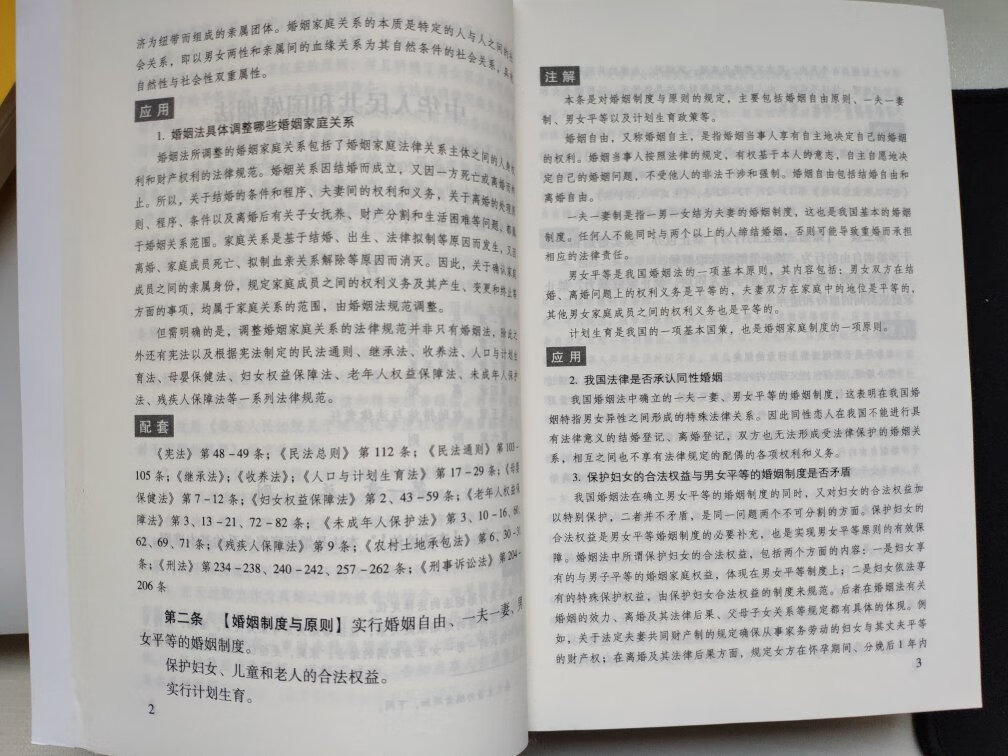 济为纽带而组成的亲属团体。婚姻家庭关系的本质是特定的人与人之间的社
会关系，即以男女两性和亲属间的血缘关系为其自然条件的社会关系，具有
自然性与社会性双重属性。
应用
1. 婚姻法具体调整哪些婚姻家庭关系
婚姻法所调整的婚姻家庭关系包括了婚姻家庭法律关系主体之间的人身权
利和财产权利的法律规范。婚姻关系因结婚而成立，又因一方死亡或离婚而终
止。所以，关于结婚的条件和程序、夫妻间的权利和义务，关于离婚的处理原
则、程序、条件以及离婚后有关子女抚养、财产分割和生活困难等问题，都属
于婚姻关系范围。家庭关系是基于结婚、出生、法律拟制等原因而发生，又因
离婚、家庭成员死亡、拟制血亲关系解除等原因而消灭。因此，关于确认家庭
成员之间的亲属身份，规定家庭成员之间的权利义务及其产生、变更和终止等
方面的事项，均属于家庭关系的范围，由婚姻法规范调整。
但需明确的是，调整婚姻家庭关系的法律规范并非只有婚姻法，除此之
外还有宪法以及根据宪法制定的民法通则、继承法、收养法、人口与计划生
育法、母婴保健法、妇女权益保障法、老年人权益保障法、未成年人保护
法、残疾人保障法等一系列法律规范。
配套
《宪法》第48-49条；《民法总则》第112条；《民法通则》第103-
105条；《继承法》；《收养法》；《人口与计划生育法》第17-29条；《母婴
保健法》第7-12条；《妇女权益保障法》第2、43-59条；《老年人权益保
障法》第3、13-21、72-82条；《未成年人保护法》第3、10-16、
62、69、71条；《残疾人保障法》第9条；《农村土地承包法》第6、30-
条；《刑法》第234-238、240-242、257-262条；《刑事诉讼法》第204-
206条
第二条 【婚姻制度与原则】实行婚姻自由、一夫一妻、男
女平等的婚姻制度。
保护妇女、儿童和老人的合法权益。
实行计划生育。
2
注解
本条是对婚姻制度与原则的规定，主要包括婚姻自由原则、一夫一妻
制、男女平等以及计划生育政策等。
婚姻自由，又称婚姻自主，是指婚姻当事人享有自主地决定自己的婚姻
的权利。婚姻当事人按照法律的规定，有权基于本人的意志，自主自愿地决
定自己的婚姻问题，不受他人的非法干涉和强制。婚姻自由包括结婚自由和
离婚自由。
一夫一妻制是指一男一女结为夫妻的婚姻制度，这也是我国基本的婚姻
制度。任何人不能同时与两个以上的人缔结婚姻，否则可能导致重婚而承担
相应的法律责任。
男女平等是我国婚姻法的一项基本原则，其内容包括：男女双方在结
婚、离婚问题上的权利义务是平等的，夫妻双方在家庭中的地位是平等的，
其他男女家庭成员之间的权利义务也是平等的。
计划生育是我国的一项基本国策，也是婚姻家庭制度的一项原则。
应用
2. 我国法律是否承认同性婚姻
我国婚姻法中确立的一夫一妻、男女平等的婚姻制度，这表明在我国婚
姻特指男女异性之间形成的特殊法律关系。因此同性恋人在我国不能进行具
有法律意义的结婚登记、离婚登记，双方也无法形成受法律保护的婚姻关
系，相互之间也不享有法律规定的配偶的各项权利和义务。
3. 保护妇女的合法权益与男女平等的婚姻制度是否矛盾
我国婚姻法在确立男女平等的婚姻制度的同时，又对妇女的合法权益加
以特别保护，二者并不矛盾，是同一问题两个不可分割的方面。保护妇女的
合法权益是男女平等婚姻制度的必要补充，也是实现男女平等原则的有效保
障。婚姻法中所谓保护妇女的合法权益，包括两个方面的内容：一是妇女享
有的与男子平等的婚姻家庭权益，体现在男女平等制度上；二是妇女依法享
有的特殊保护权益，由保护妇女合法权益的制度来规范。后者在婚姻法有关
婚姻的效力、离婚及其法律后果、父母子女关系等规定都有具体的体现。例
如，关于法定夫妻共同财产制的规定确保从事家务劳动的妇女与其丈夫平等
的财产权；在离婚及其法律后果方面，规定女方在怀孕期间、分娩后1年内
3